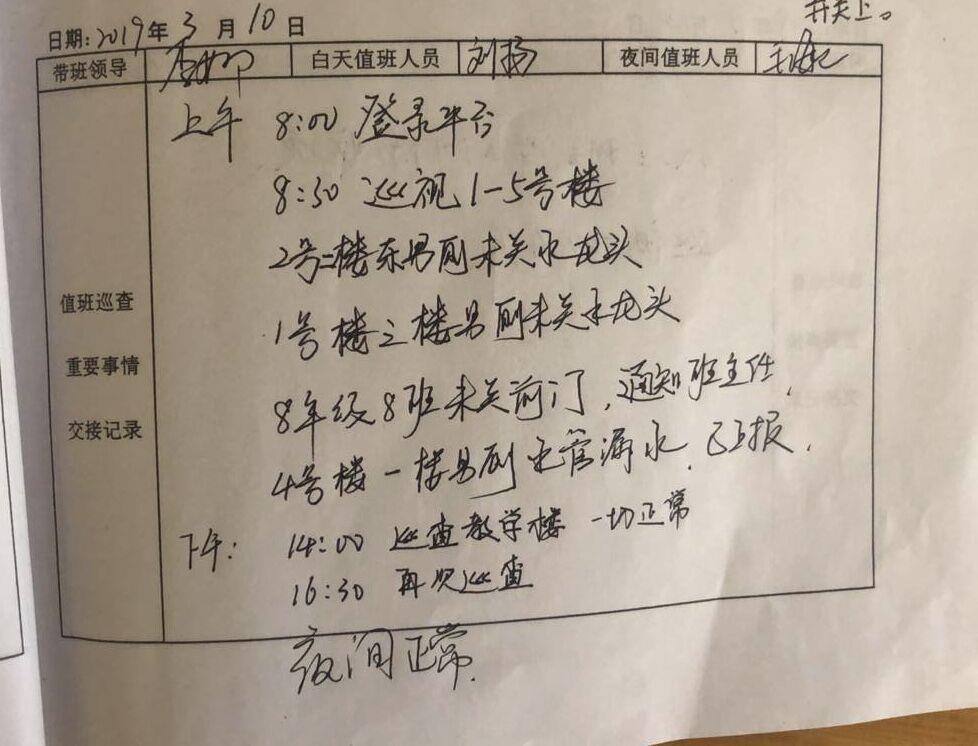 并关上。
日期:2019年3月10日
带班领导 白天值班人员 刘扬 夜间值班人员
上午 8:00 登录平台
8:30 巡视1-5号楼
2号二楼东男厕未关水龙头
值班巡查
1号楼三楼男厕未关水龙头
重要事情
8年级8班未关前门,通知班主任,
交接记录
4号楼一楼男厕水管漏水,已上报,
下午: 14:00 巡查教学楼 一切正常
16:30 再次巡查
夜间正常.